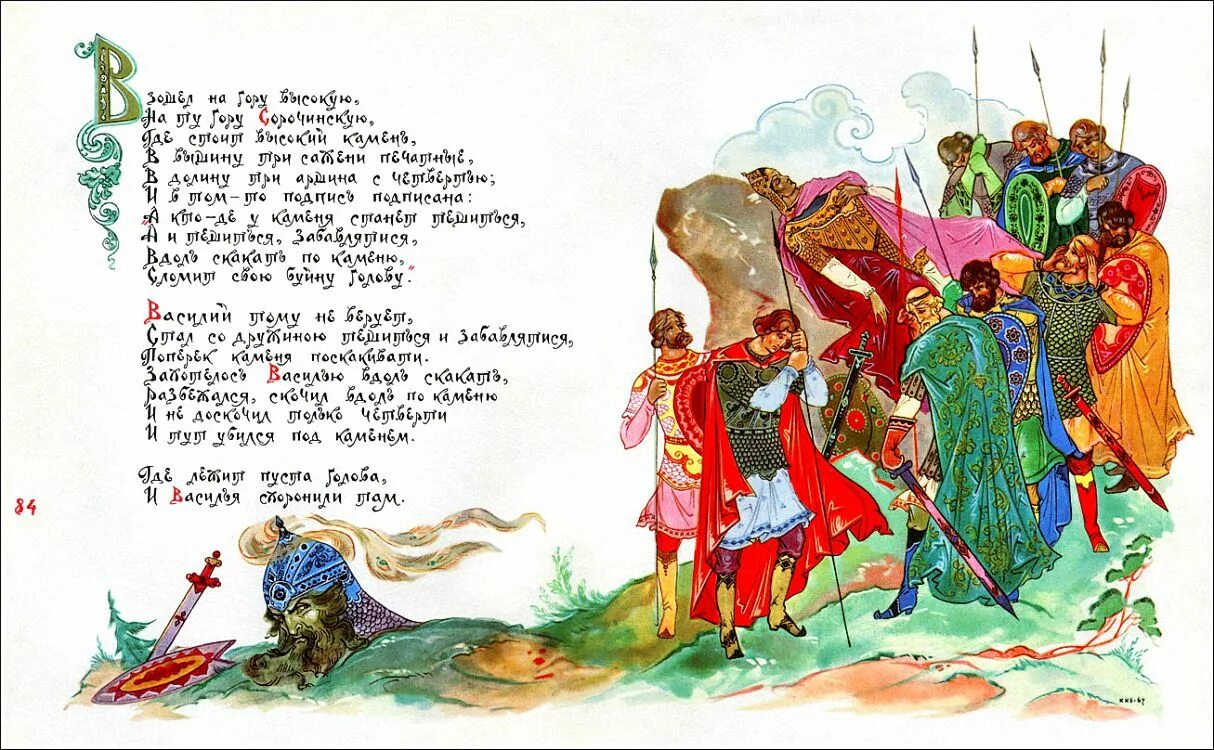 Взошел на гору высокую,
На ту гору Сорочинскую,
Где стоит высокий камень,
В вышину три сажени печатные,
В долину три аршина с четвертью;
И в том-то подпись подписана:
"А кто-де у каменя станет тешиться,
А и тешиться, забавлятися,
Вдоль скакать по каменю,
Сломит свою буйну голову".
Василий тому не верует,
Стал со дружиною тешиться и забавлятися,
Поперек каменя поскакивати.
Захотелось Василью вдоль скакать,
Разбежался, скочил вдоль по каменю
И не доскочил только четверти
И тут убился под каменем.
Где лежит пуста голова,
И Василья схоронили там.
84
ККВ-67